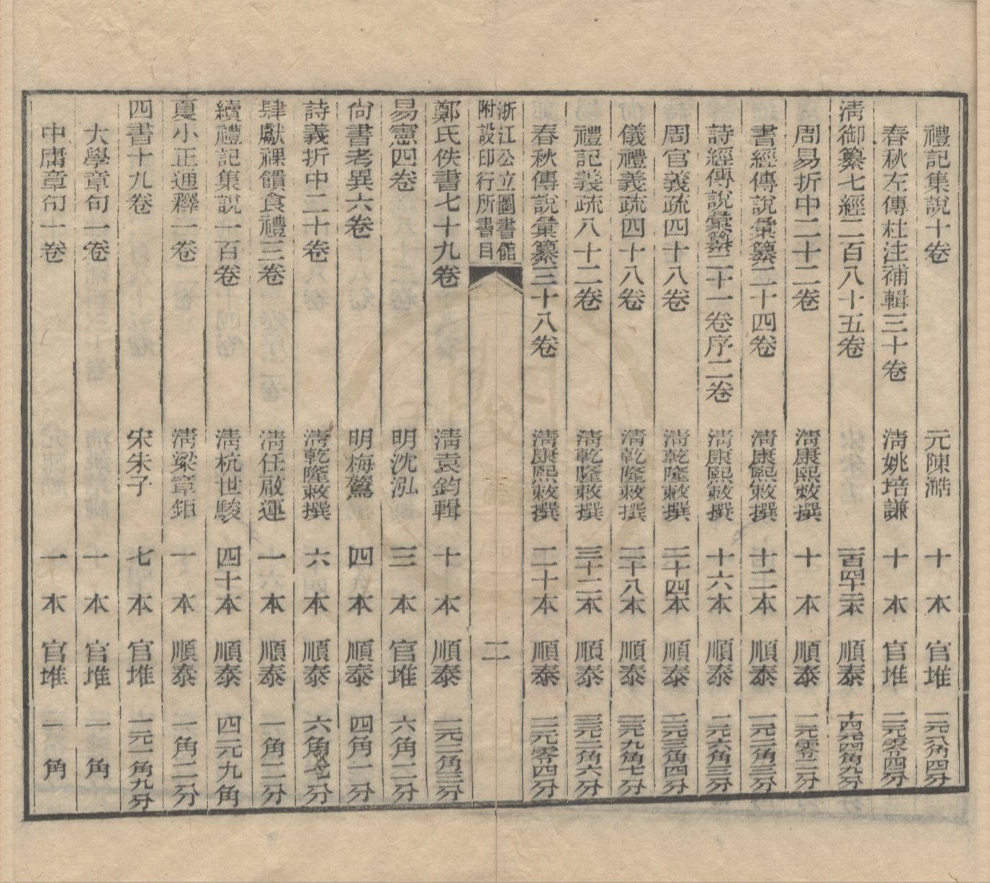 禮記集說十卷 元陳澔 十本 官堆 一元八角四分
春秋左傳杜注補輯三十卷 淸姚培謙 十本 官堆 二元零四分
淸御纂七經二百八十五卷 一百四十二本 順泰 十四元四角九分
周易折中二十二卷 淸康熙敕撰 十本 順泰 一元零二分
書經傳說彙纂二十四卷 淸康熙敕撰 十二本 順泰 一元二角三分
詩經傳說彙纂二十一卷序二卷 淸康熙敕撰 十六本 順泰 二元六角三分
周官義疏四十八卷 淸乾隆敕撰 二十四本 順泰 二元三角四分
儀禮義疏四十八卷 淸乾隆敕撰 二十八本 順泰 二元九角七分
禮記義疏八十二卷 淸乾隆敕撰 三十二本 順泰 三元二角六分
春秋傳說彙纂三十八卷 淸康熙敕撰 二十本 順泰 二元零四分
浙江公立圖書館
附設印行所書目
二
鄭氏佚書七十九卷 淸袁鈞輯 十本 順泰 一元二角三分
易憲四卷 明沈泓 三本 官堆 六角二分
尙書考異六卷 明梅鷟 四本 順泰 四角二分
詩義折中二十卷 淸乾隆敕撰 六本 順泰 六角七分
肆獻祼饋食禮三卷 淸任啟運 一本 順泰 一角二分
續禮記集說一百卷 淸杭世駿 四十本 順泰 四元九角
夏小正通釋一卷 淸梁章鉅 一本 順泰 一角二分
四書十九卷 宋朱子 七本 官堆 一元一角九分
大學章句一卷 一本 官堆 一角
中庸章句一卷 一本 官堆 二角